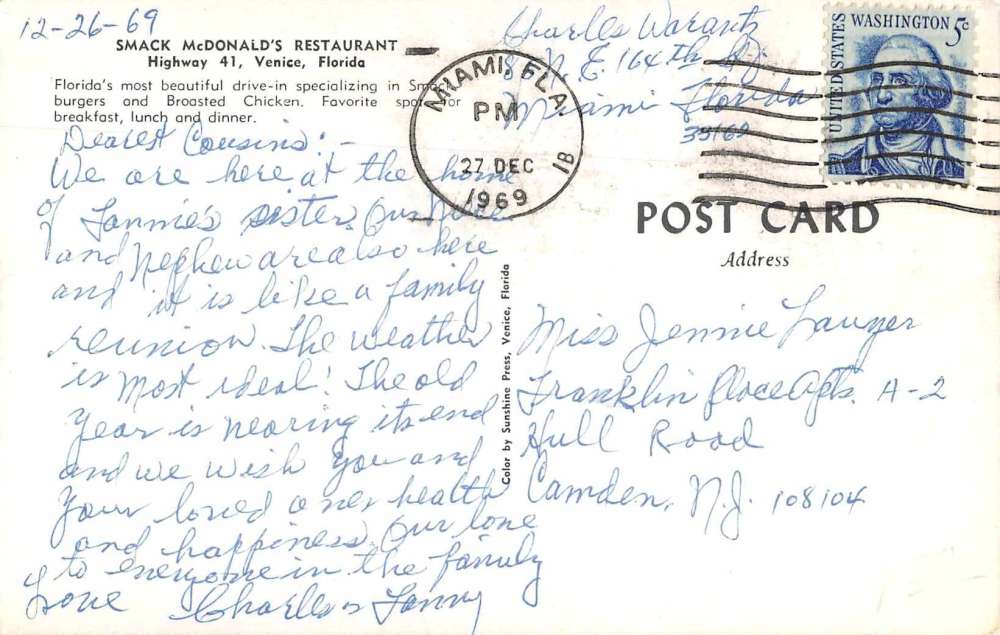 12-26-69
SMACK McDONALD'S RESTAURANT
Highway 41, Venice, Florida
Florida's most beautiful drive-in specializing in Smack
burgers and Broasted Chicken. Favorite spot for
breakfast, lunch and dinner.
Dearest Cousins:-
We are here at the home
of Fannie's sister. Our niece
and nephew are also here
and it is like a family
reunion. The weather
is most ideal! The old
year is nearing its end
and we wish you and
your loved ones health
and happiness. Our love
to everyone in the family
Love Charles & Fanny
Charles Warantz
N. E. 164th
Miami Florida
MIAMI, FLA.
PM
27 DEC
1969
1B
UNITED STATES
WASHINGTON 5c
POST CARD
Address
Color by Sunshine Press, Venice, Florida
Miss Jennie
Franklin Place Apts. A-2
Hull Road
Camden, N.J. 108104